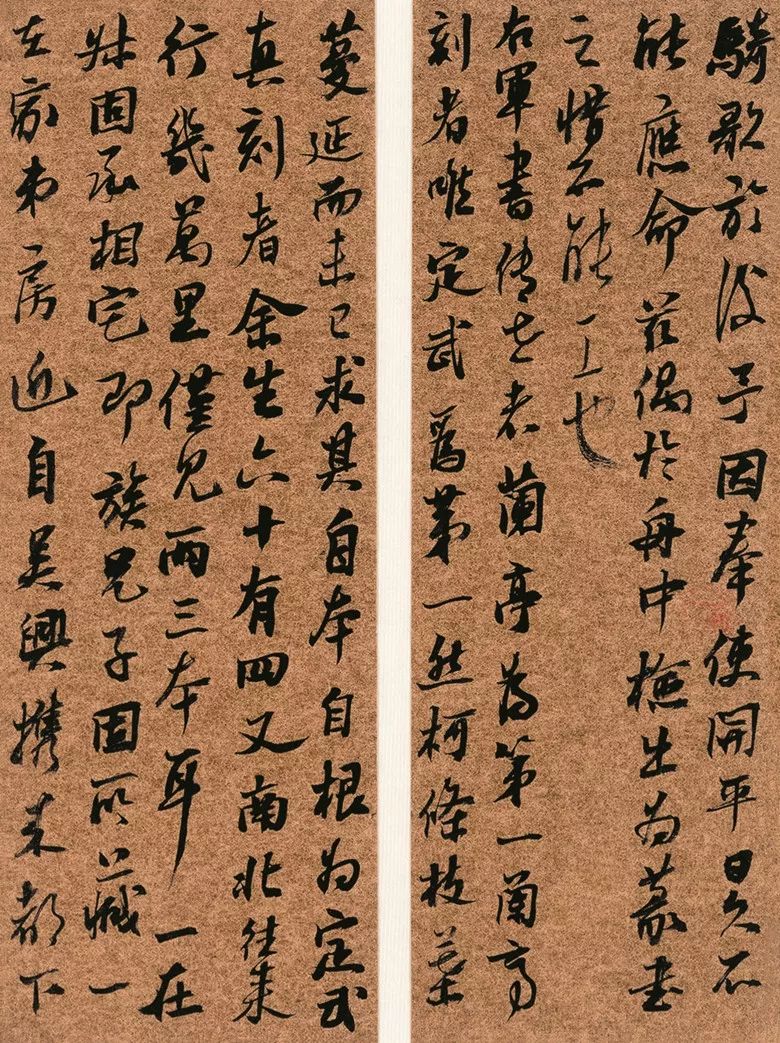 騎歌於後予因奉使開平日久不
能應命茲偶於舟中檢出為篆書
之惜不能工也
右軍書傳世者蘭亭為第一蘭亭
刻者唯定武為第一然柯條枝葉
蔓延而未已求其自本自根為定武
真刻者余生六十有四又南北往來
行幾萬里僅見兩三本耳一在
固承相宅即族兄子固所藏一
在家弟房近自吳興攜來都下